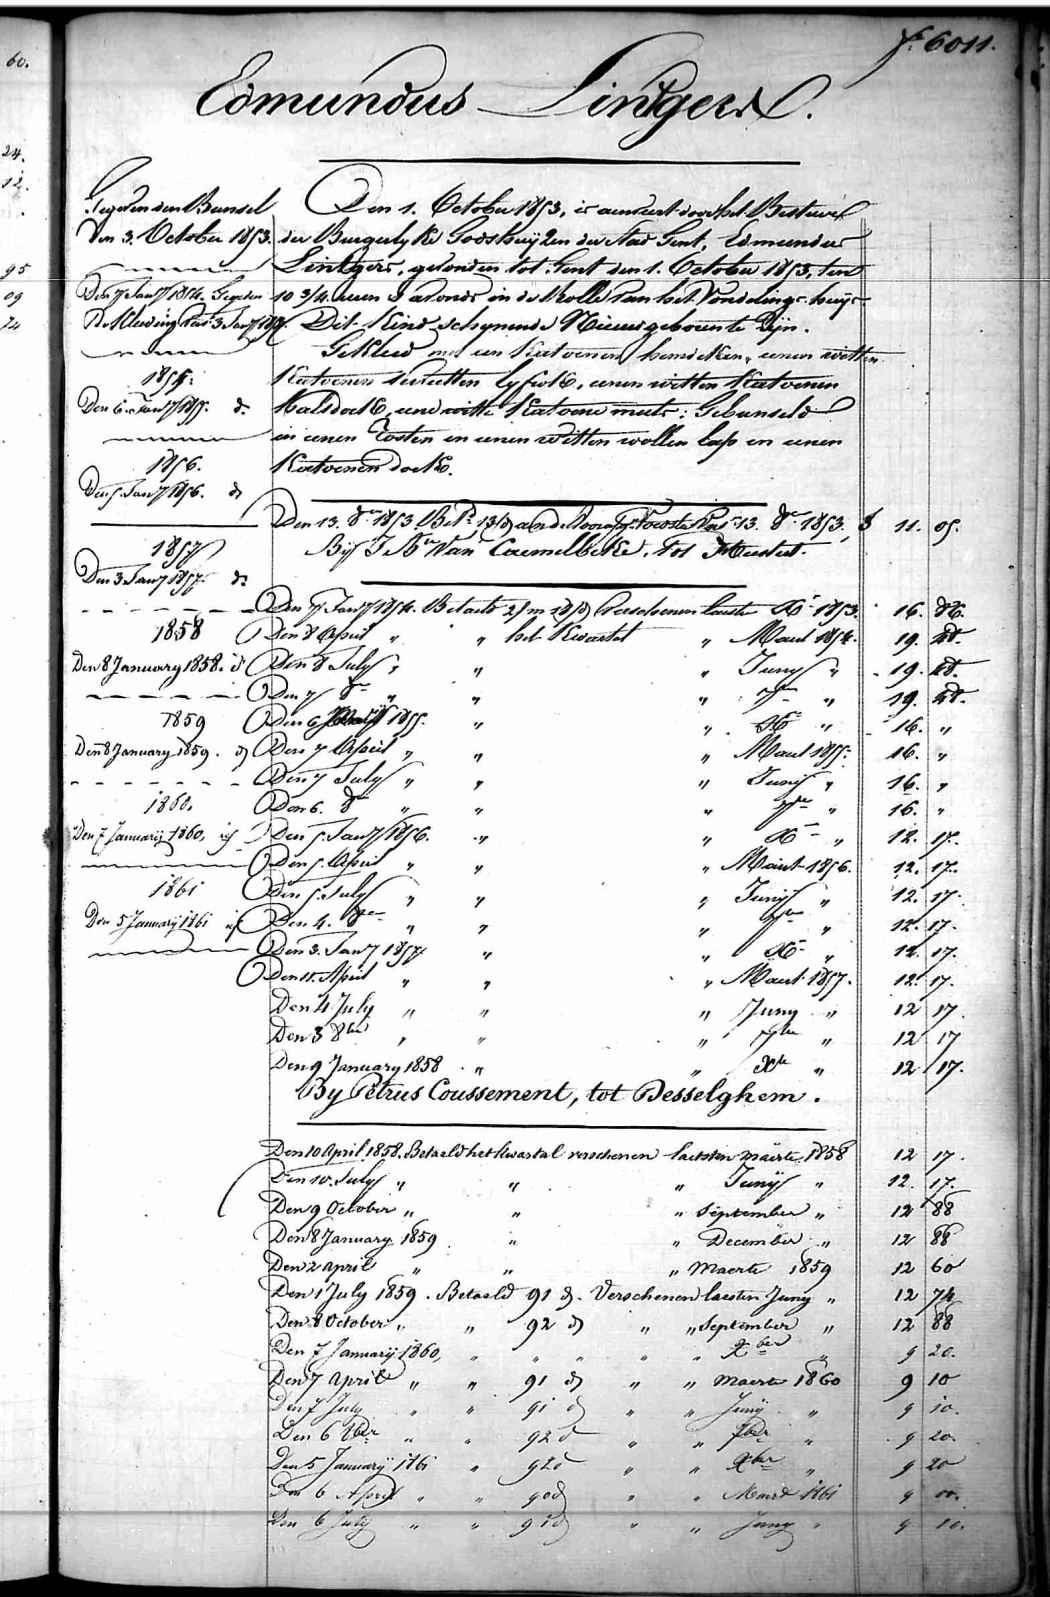 f. 6011.
Edmundus Lintgers.
60.
24.
12.
95
09
74
Gegeven den Bunsel
den 3. October 1853.
Den 7 Jany 1854. Gegeven
De Kleeding van 3 Jany
1855.
Den 6. Jany 1855. do
1856.
Den 5. Jany 1856. do
1857
Den 3. Jany 1857. do
1858
Den 8 January 1858. id
1859
Den 8 January 1859. do
1860.
Den 7 Januarij 1860, id
1861
Den 5 Januarij 1861 id
Den 1. October 1853, is aenveert door het Bestuer
der Burgerlyke Godshuyzen der Stad Gent, Edmundus
Lintgers, gevonden tot Gent den 1. October 1853, ten
10 3/4 uren 's avonds in de Rolle van het Vondelings-huys
Dit Kind schynende Nieuwgeboren te Zyn.
Gekleed met een Katoenen hemdeken, eenen witten
Katoenen lyfrok, eenen witten Katoenen
Halsdoek, eene witte Katoene muts: Gebunseld
in eenen en eenen witten wollen lap en eenen
Katoenen doek.
Den 13. 8er 1853. 13. 8er 1853, 11. 05.
By Van Caemelbeke, tot
Den 7 Jany 1854. Betaeld verschenen laesten Xr 1853. 16. 86.
Den 8 April " " het Kwartal " Maert 1854. 19. 48.
Den 8 July " " " Juny " 19. 48.
Den 7 8er " " " 7er " 19. 48.
Den 6 Jany 1855. " " Xr " 16. "
Den 7 April " " " Maert 1855. 16. "
Den 7 July " " " Juny " 16. "
Den 6. 8er " " " 7er " 16. "
Den 5. Jany 1856. " " Xr " 12. 17.
Den 5. April " " " Maert 1856. 12. 17.
Den 5. July " " " Juny " 12. 17.
Den 4. 8er " " " 7er " 12. 17.
Den 3. Jany 1857 " " Xr " 12. 17.
Den 11. April " " " Maert 1857. 12. 17.
Den 4 July " " " Juny " 12 17.
Den 3 8ber " " " 7ber " 12 17
Den 9 January 1858 " " Xbr " 12 17.
By Petrus Coussement, tot Desselghem.
Den 10 April 1858. Betaeld het kwartal verschenen laetsten maerte 1858 12 17.
Den 10. July " " " Junij " 12. 17.
Den 9 October " " " September " 12 88
Den 8 January 1859 " " December " 12 88
Den 2 April " " " Maerte 1859 12 60
Den 1 July 1859. Betaeld 91 d. Verschenen laesten Juny " 12 74
Den 8 October " " 92 d " " September " 12 88
Den 7 Januarij 1860, " " " " " Xber " 9 20.
Den 7 April " " 91 d " " maerte 1860 9 10
Den 7 July " " 91 d " " Junij " 9 10.
Den 6 8ber " " 92 d " " 7ber " 9 20.
Den 5 Januarij 1861 " 92 d " " Xber " 9 20
Den 6 April " " 90 d " " Maert 1861 9 00.
Den 6 July " " 91 d " " Juny " 9 10.